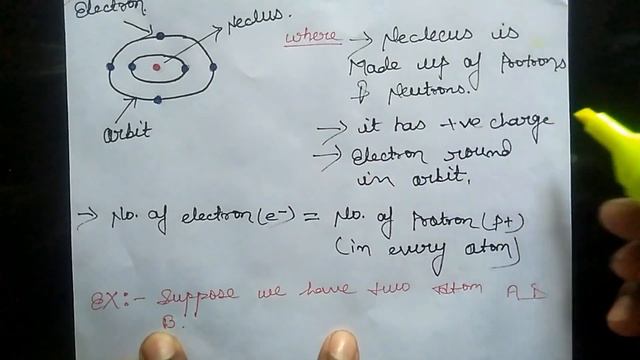 Electron.
Neclus.
orbit
where → Neclecus is
Made up of Protrons
& Neutrons.
→ it has +ve charge
→ Electron round
in orbit.
→ No. of electron (e-) = No. of Protron (P+)
(in every atom)
EX:- Suppose we have two atom A &
B.